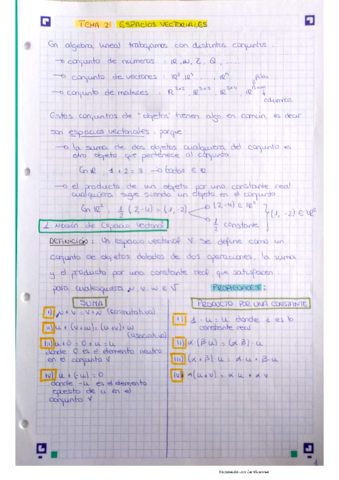 TEMA 2: ESPACIOS VECTORIALES
En álgebra lineal trabajamos con distintos conjuntos
→ conjunto de números : ℝ, ℕ, ℤ, ℚ, ......
→ conjunto de vectores : ℝ², ℝ³, ...., ℝⁿ filas
→ conjunto de matrices :
columnas
Estos conjuntos de "objetos" tienen algo en común, es decir
son espacios vectoriales, porque
→ la suma de dos objetos cualquiera del conjunto es
otro objeto que pertenece al conjunto.
En ℝ, 1 + 2 = 3 → todos ∈ ℝ
→ el producto de un objeto por una constante real
cualquiera sigue siendo un objeto en el conjunto
En ℝ² : 1/2 (2,-4) = (1,-2) (2,-4) ∈ ℝ² (1,-2) ∈ ℝ²
1/2 constante
1 Noción de Espacio Vectorial
DEFINICIÓN: Un espacio vectorial V se define como un
conjunto de objetos dotados de dos operaciones, la suma
y el producto por una constante real que satisfacen
para cualesquiera u, v, w ∈ V PROPIEDADES:
SUMA
i) u + v = v + u (conmutativa)
ii) u + (v + w) = (u + v) + w
(asociativa)
iii) u + 0 = 0 + u = u
donde 0 es el elemento neutro
en el conjunto V
iv) u + (-u) = 0
donde -u es el elemento
opuesto de u en el
conjunto V
PRODUCTO POR UNA CONSTANTE
i) 1 · u = u donde 1 es la
constante real
ii) α (β u) = (α β) · u
iii) (α + β) u = α · u + β · u
iv) α (u + v) = α u + α v